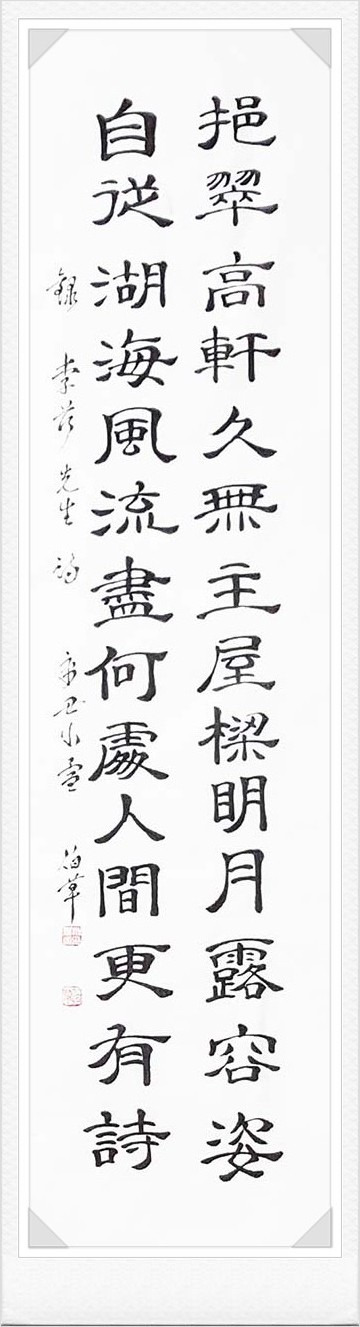 挹翠高軒久無主屋樑明月露容姿
自從湖海風流盡何處人間更有詩
錄 先生詩 辛丑小雪